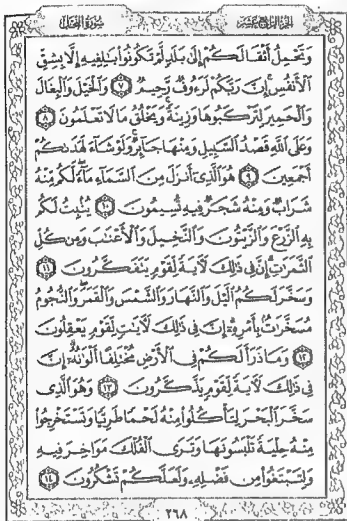 الجزء الرابع عشر سورة النحل
وَتَحْمِلُ أَثْقَالَكُمْ إِلَىٰ بَلَدٍ لَّمْ تَكُونُوا۟ بَٰلِغِيهِ إِلَّا بِشِقِّ
ٱلْأَنفُسِ إِنَّ رَبَّكُمْ لَرَءُوفٌ رَّحِيمٌ ٧ وَٱلْخَيْلَ وَٱلْبِغَالَ
وَٱلْحَمِيرَ لِتَرْكَبُوهَا وَزِينَةً وَيَخْلُقُ مَا لَا تَعْلَمُونَ ٨
وَعَلَى ٱللَّهِ قَصْدُ ٱلسَّبِيلِ وَمِنْهَا جَآئِرٌ وَلَوْ شَآءَ لَهَدَىٰكُمْ
أَجْمَعِينَ ٩ هُوَ ٱلَّذِىٓ أَنزَلَ مِنَ ٱلسَّمَآءِ مَآءً لَّكُم مِّنْهُ
شَرَابٌ وَمِنْهُ شَجَرٌ فِيهِ تُسِيمُونَ ١٠ يُنۢبِتُ لَكُم
بِهِ ٱلزَّرْعَ وَٱلزَّيْتُونَ وَٱلنَّخِيلَ وَٱلْأَعْنَٰبَ وَمِن كُلِّ
ٱلثَّمَرَٰتِ إِنَّ فِى ذَٰلِكَ لَءَايَةً لِّقَوْمٍ يَتَفَكَّرُونَ ١١
وَسَخَّرَ لَكُمُ ٱلَّيْلَ وَٱلنَّهَارَ وَٱلشَّمْسَ وَٱلْقَمَرَ وَٱلنُّجُومُ
مُسَخَّرَٰتٌۢ بِأَمْرِهِۦٓ إِنَّ فِى ذَٰلِكَ لَءَايَٰتٍ لِّقَوْمٍ يَعْقِلُونَ
١٢ وَمَا ذَرَأَ لَكُمْ فِى ٱلْأَرْضِ مُخْتَلِفًا أَلْوَٰنُهُۥٓ إِنَّ
فِى ذَٰلِكَ لَءَايَةً لِّقَوْمٍ يَذَّكَّرُونَ ١٣ وَهُوَ ٱلَّذِى
سَخَّرَ ٱلْبَحْرَ لِتَأْكُلُوا۟ مِنْهُ لَحْمًا طَرِيًّا وَتَسْتَخْرِجُوا۟
مِنْهُ حِلْيَةً تَلْبَسُونَهَا وَتَرَى ٱلْفُلْكَ مَوَاخِرَ فِيهِ
وَلِتَبْتَغُوا۟ مِن فَضْلِهِۦ وَلَعَلَّكُمْ تَشْكُرُونَ ١٤
٢٦٨